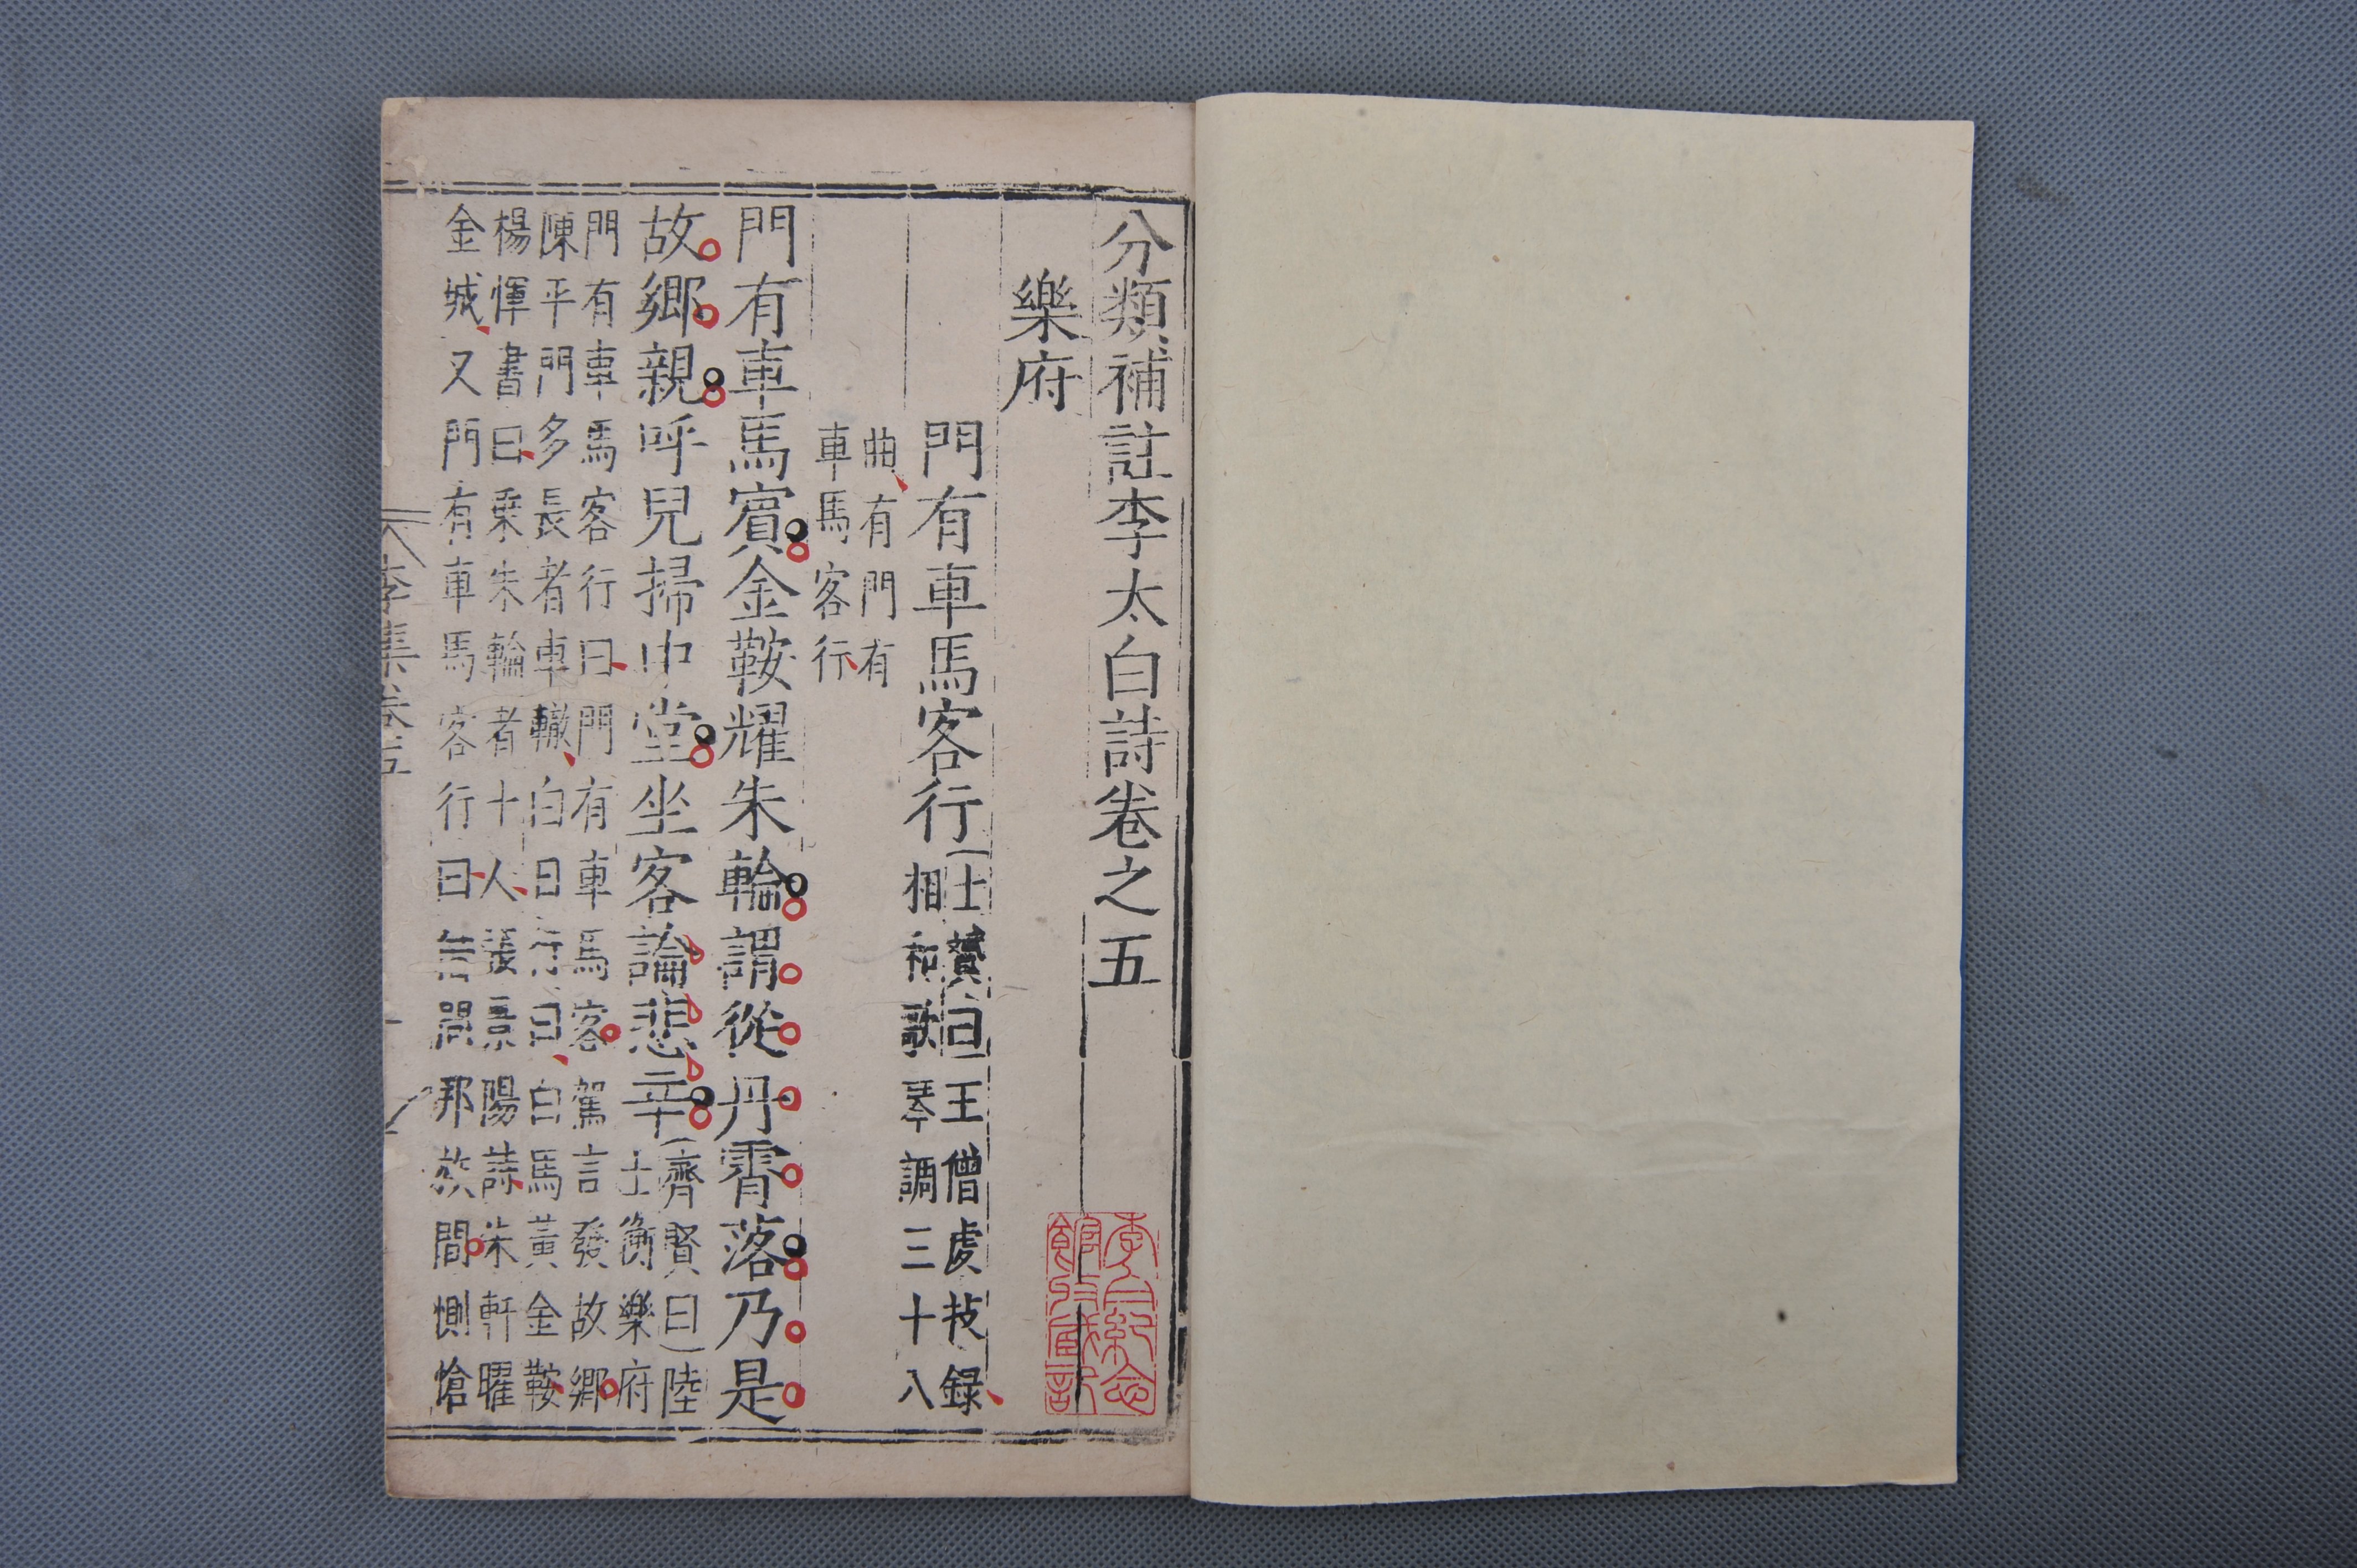 分類補註李太白詩卷之五
樂府
門有車馬客行
士贇曰王僧虔技録
相和歌琴調三十八
曲有門有
車馬客行
門有車馬賔金鞍耀朱輪謂從丹霄落乃是
故鄉親呼兒掃中堂坐客論悲辛
齊賢曰陸
士衡樂府
門有車馬客行曰門有車馬客駕言發故鄉
陳平門多長者車轍白日行曰白馬黃金鞍
楊惲書曰乗朱輪者十人張景陽詩朱軒曜
金城又門有車馬客行曰 問邦族間惻愴
李集卷五
李白紀念館